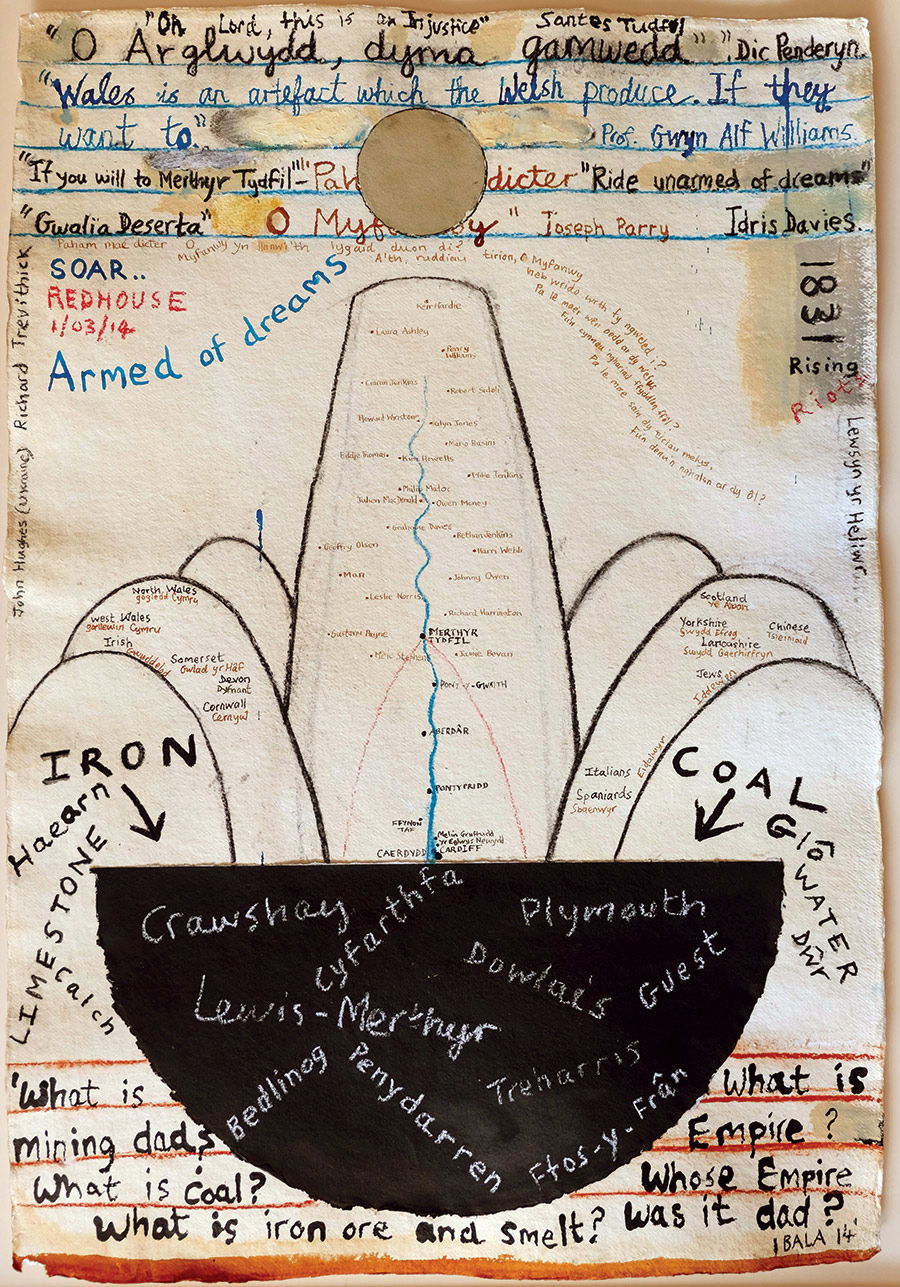 "Oh Lord, this is an Injustice" Santes Tudful
"O Arglwydd, dyma gamwedd" Dic Penderyn.
"Wales is an artefact which the Welsh produce. If they
want to." Prof. Gwyn Alf Williams.
"If you will to Merthyr Tydfil"- "Pah dicter "Ride unarmed of dreams"
"Gwalia Deserta" O Myf y" Joseph Parry Idris Davies.
Paham mae dicter O
Myfanwy yn llanw'th lygaid duon di?
A'th ruddiau tirion, O Myfanwy
heb wrido wrth fy ngweled i?
Pa le mae'r wen oedd ar dy wefus
Pa le mae sain dy eiriau melus,
SOAR..
REDHOUSE
1/03/14
Armed of dreams
1831
Rising
Riots
John Hughes (Ukraine) Richard Trevithick
Lewsyn yr Heliwr
Keir Hardie
Laura Ashley
Penry Williams
Ciaran Jenkins
Robert Sedoli
Howard Winstone
Glyn Jones
Mario Basini
Eddie Thomas
Kim Howells
Mike Jenkins
Philip Madoc
Julien MacDonald
Owen Money
Grahame Davies
Bethan Jenkins
Geoffry Olsen
Harri Webb
Man
Johnny Owen
Leslie Norris
Richard Harrington
Gustavius Payne
MERTHYR TYDFIL
Meic Stephens
Jamie Bevan
PONT-Y-GWAITH
ABERDÂR
PONTYPRIDD
FFYNON TAF
Melin Gruffudd
Yr Eglwys Newydd
CAERDYDD
CARDIFF
North Wales
gogledd Cymru
West Wales
gorllewin Cymru
Irish
Gwyddelod
Somerset
Gwlad yr Hâf
Devon
Dyfnant
Cornwall
Cernyw
Scotland
Yr Alban
Yorkshire
Swydd Efrog
Chinese
Tsieniaid
Lancashire
Swydd Gaerhirfryn
Jews
Iddewon
Italians
Eidalwyr
Spaniards
Sbaenwyr
IRON
Haearn
LIMESTONE
Calch
COAL
Glô
WATER
Dŵr
Crawshay
Cyfarthfa
Plymouth
Dowlais
Guest
Lewis-Merthyr
Bedlinog
Penydarren
Treharris
Ffos-y-Frân
'What is
mining dad?
What is coal?
What is iron ore and smelt?
What is
Empire?
Whose Empire
was it dad?
BALA 14'